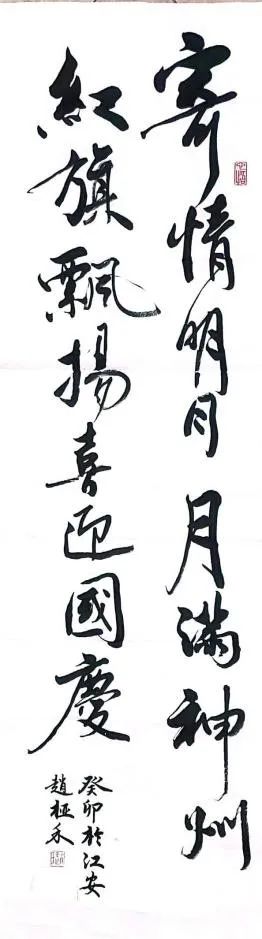 寄情明月月滿神州
紅旗飄揚喜迎國慶
癸卯於江安
趙極永